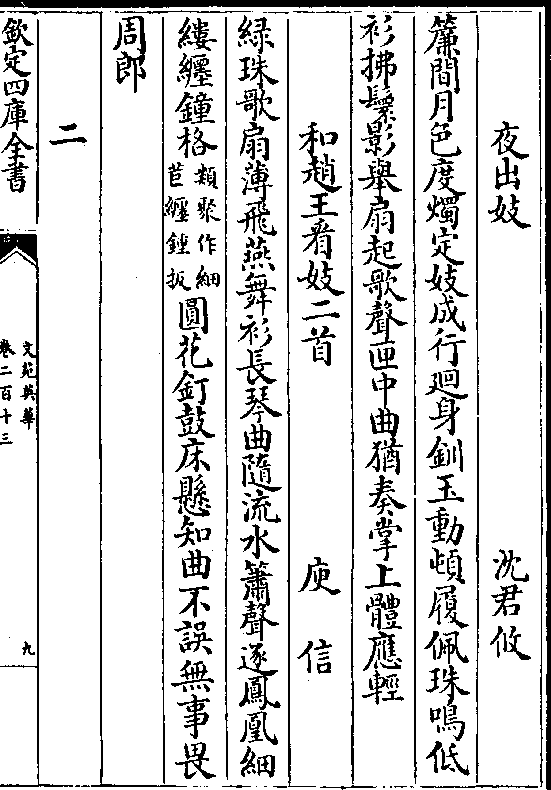 夜出妓　沈君攸
簾間月色度燭定妓成行廻身釧玉動頓履佩珠鳴低
衫拂鬟影舉扇起歌聲匣中曲猶奏掌上體應輕
和趙王看妓二首　庾信
緑珠歌扇薄飛燕舞衫長琴曲隨流水簫聲逐鳳凰細
縷纏鐘格類聚作細苣纏鍾扳圓花釘鼓床懸知曲不誤無事畏
周郎
二
欽定四庫全書
文苑英華
卷二百十三
九